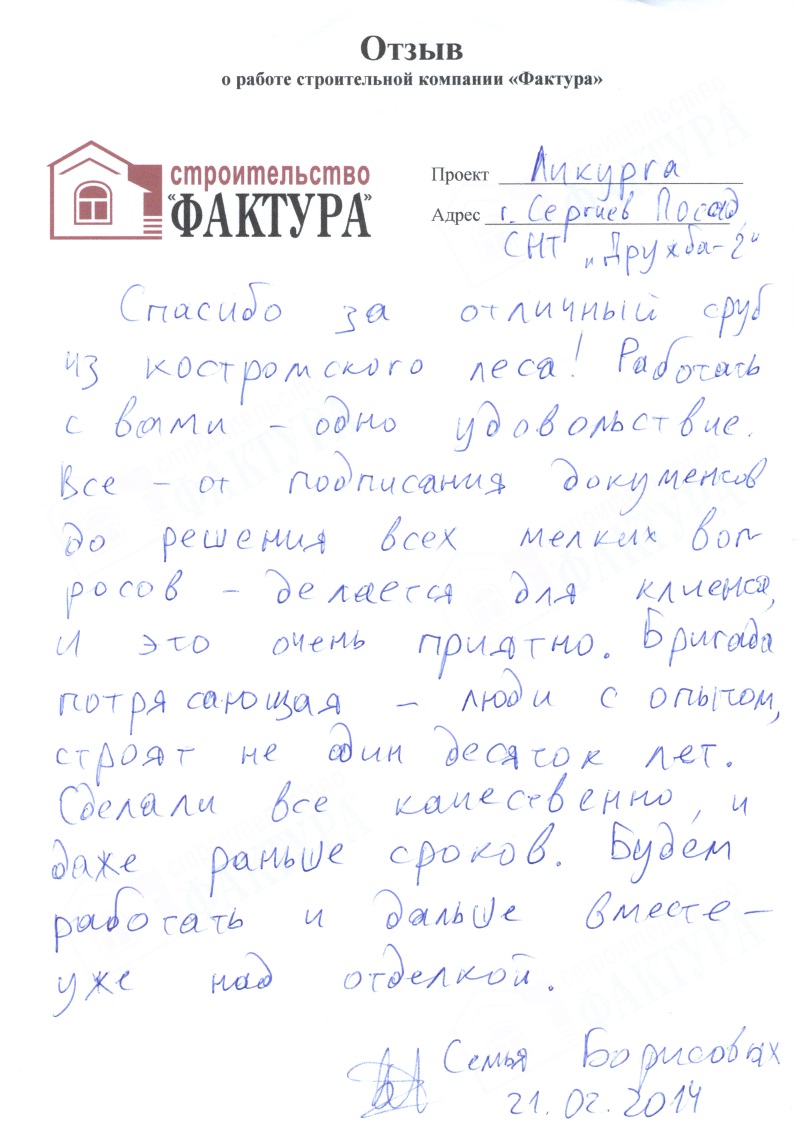 Отзыв
о работе строительной компании «Фактура»
строительство
"ФАКТУРА"
Проект Ликурга
Адрес г. Сергиев Посад,
СНТ „Дружба-2"
Спасибо за отличный сруб
из костромского леса! Работать
с вами – одно удовольствие.
Все – от подписания документов
до решения всех мелких воп-
росов – делается для клиента,
и это очень приятно. Бригада
потрясающая – люди с опытом,
строят не один десяток лет.
Сделали все качественно, и
даже раньше сроков. Будем
работать и дальше вместе –
уже над отделкой.
Семья Борисовых
21.02.2014